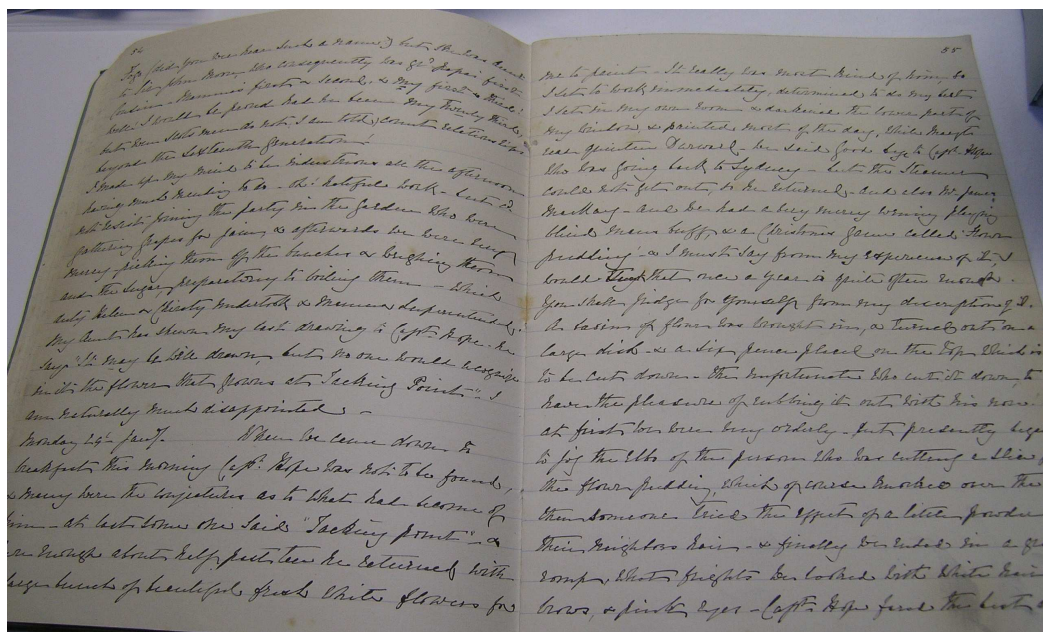 54
(did you ever hear such a name?) but she was
to Sir John Moore who consequently was Gd Papa's first
Cousin - Mamma's first & second, & my first & third!
I would be proud had he been my Twenty third,
but even Scots men do not I am told, count relationships
beyond the sixteenth generation!
I made up my mind to be industrious all the afternoon
having much mending to do - oh! hateful work - but I
joining the party in the garden who were
gathering grapes for jam, & afterwards we were very
merry picking them off the bunches & weighing them
and the sugar, preparatory to boiling them - which
Aunty Helen & Christy undertook & Mamma superintended.
My Aunt has shewn my last drawing to Capt. Hope. He
says "It may be well drawn, but no one would recognize
in it the flower that grows at Tacking Point". I
am naturally much disappointed. -
Monday 29th Jany. When we came down to
breakfast this morning Capt. Hope was not to be found,
& many were the conjectures as to what had become of
him - at last some one said "Tacking point" - &
sure enough about half past ten he returned with
large bunch of beautiful fresh white flowers for
55
me to paint - It really was most kind of him, so
I set to work immediately, determined to do my best
I sat in my own room & darkened the lower part of
my window, & painted most of the day, while Margt
read Quentin Durward. We said good bye to Capt. Hope
who was going back to Sydney - but the Steamer
could not get out, so he returned - and also Mr James
Mackay - and we had a very merry evening playing
blind mans buff, & a Christmas game called "Flour
pudding" - & I must say from my experience of it - I
would think that once a year is quite often enough.
You shall judge for yourself from my description of it.
A basin of flour was brought in, & turned out on a
large dish - & a six pence placed on the top which is
to be cut down - the unfortunate who cuts it down, to
have the pleasure of rubbing it out with his nose -
at first we were very orderly - but presently began
to jog the elbo of the person who was cutting a slice of
the flour pudding, which of course smoked over the
then someone tried the effect of a little powder
their neighbors hair - & finally we ended in a
romp, what frights we looked with white hair
brows, & pink eyes - Capt. Hope